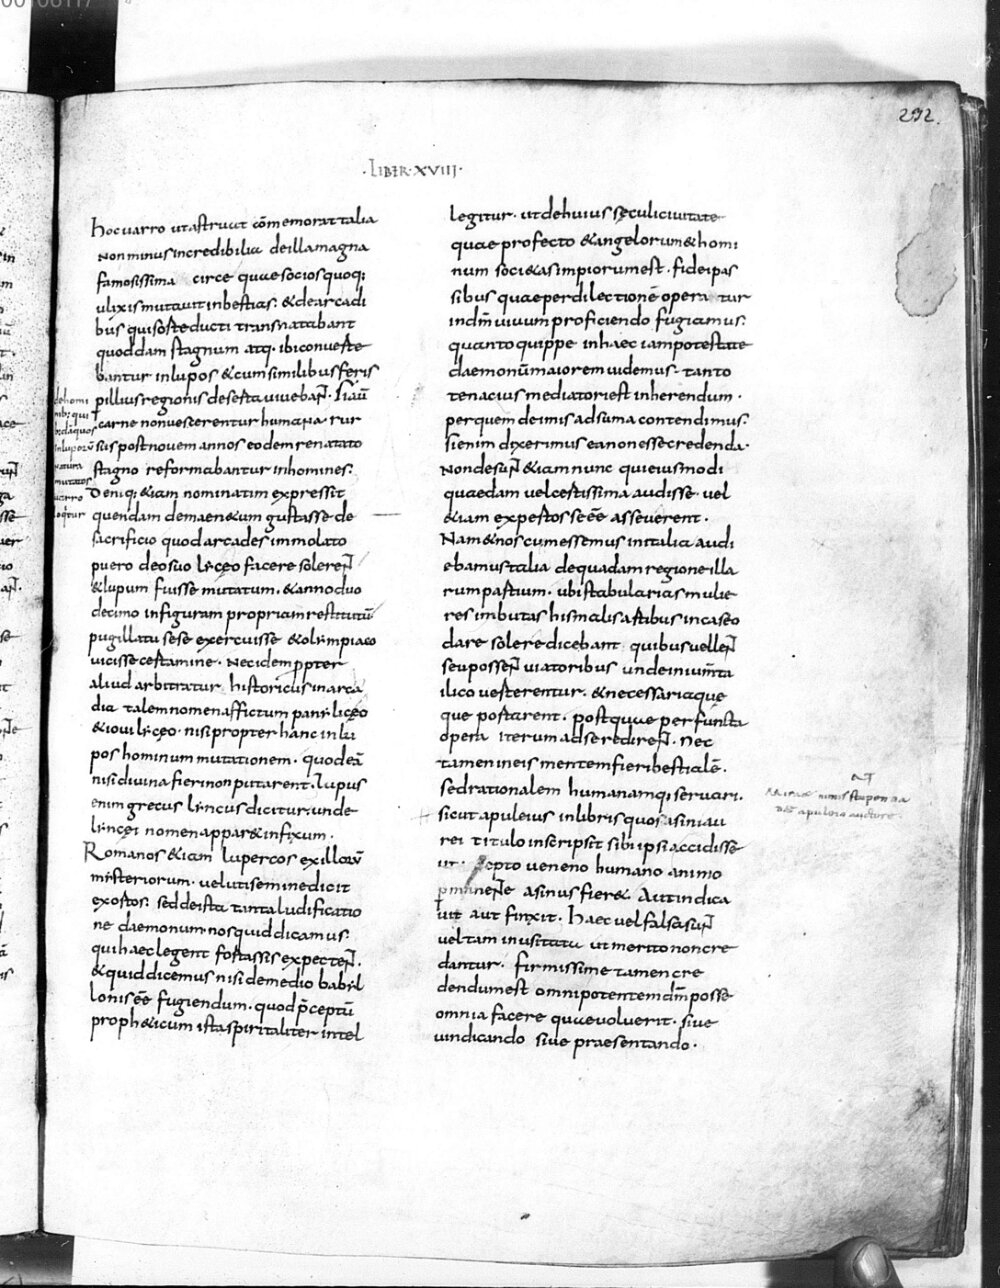 292.
·LIBER·XVIII·
Hoc varro ut astruat cōmemorat talia
non minus incredibilia de illa magna
famosissima circe quae socios quoq;
ulixis mutavit in bestias. & de arcadi
bus qui sorte ducti transnatabant
quoddam stagnum atq. ibi converte
bantur in lupos & cum similibus feris
p illius regionis deserta vivebant. Si aū
carne non vescerentur humana rur
sus post novem annos eodem renatato
stagno reformabantur in homines.
Deniq; &iam nominatim expressit
quendam demaen&um gustasse de
sacrificio quod arcades immolato
puero deo suo lyceo facere solerent
& lupum fuisse mutatum. & anno duo
decimo in figuram propriam restitutū
pugillatu sese exercuisse & olympiaco
vicisse certamine. Nec idem ppter
aliud arbitratur historicus in arca
dia talem nomen affictum pani lyceo
& iovi lyceo. nisi propter hanc in lu
pos hominum mutationem. quod eā
nisi divina fieri non putarent. lupus
enim grecus lyncus dicitur unde
lyncei nomen appar& infixum.
Romanos &iam lupercos ex illorū
misteriorum. veluti semine dicit
exortos. sed de ista tanta ludificatio
ne daemonum nos quid dicamus.
qui haec legent fortassis expectent.
& quid dicemus nisi de medio babil
lonis eē fugiendum. quod p̄ceptū
proph&icum ista spiritaliter intel
legitur. ut de huius seculi civitate
quae profecto & angelorum & homi
num soci&as impiorum est. fidei pas
sibus quae per dilectionē opera tur
in dm̄ vivum proficiendo fugiamus.
quanto quippe in haec iam potestate
daemonū maiorem videmus. tanto
tenacius mediatori est inherendum.
per quem de imis ad suma contendimus.
Si enim dixerimus ea non esse credenda.
Non desunt &iam nunc qui eius modi
quaedam vel certissima audisse. vel
&iam expertos se eē asseverent.
Nam & nos cum essemus in italia audi
ebamus talia de quadam regione illa
rum partium. ubi stabularias mulie
res imbutas his malis artibus in caseo
dare solere dicebant quibus vellent
seu possent viatoribus unde in iumta
ilico verterentur. & necessaria que
que portarent. post quae perfuncta
opera iterum ad se redirent. Nec
tamen in eis mentem fieri bestialē.
sed rationalem humanamq; servari.
sicut apuleius in libris quos asini au
rei titulo inscripsit sibi ipsi accidisse
ut. accepto veneno humano animo
pmanente asinus fier&. Aut indica
vit aut finxit. Haec vel falsa sunt
vel tam inusitata ut merito non cre
dantur. firmissime tamen cre
dendum est omnipotentem dm̄ posse
omnia facere quae voluerit. sive
vindicando sive praestando.
de homi
nib; qui
natura
mutatos
varro
loq̄tur
apuleio auctore.